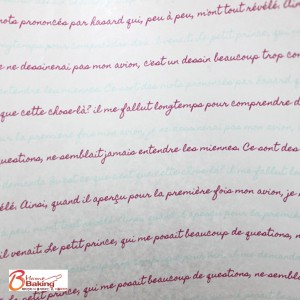 mots prononcés par hasard qui, peu à peu, m'ont tout révélé. Ain
je ne dessinerai pas mon avion, c'est un dessin beaucoup trop com
que cette chose-là? il me fallut longtemps pour comprendre d'
questions, ne semblait jamais entendre les miennes. Ce sont des
élé. Ainsi, quand il aperçu pour la première fois mon avion, je
il venait. Le petit prince, qui me posait beaucoup de questions, ne
prince, qui me posait beaucoup de questions, ne sembla
Home
Baking